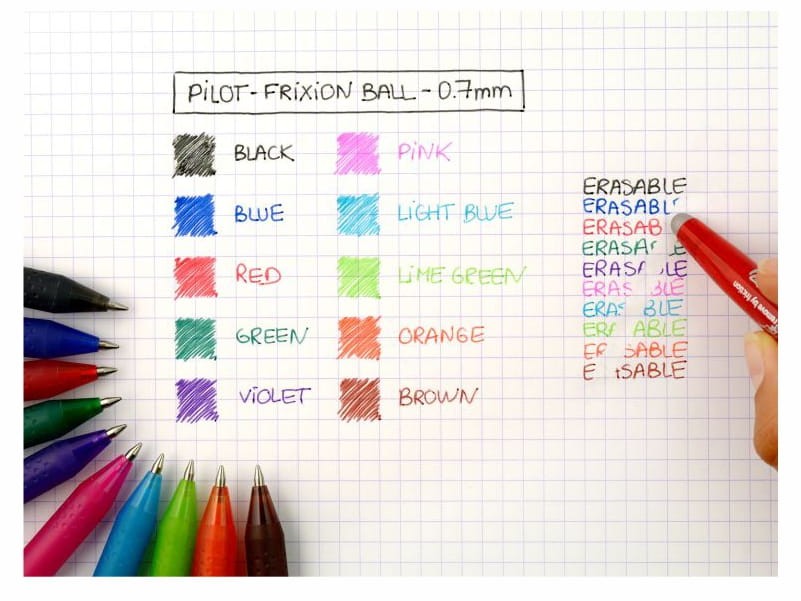 PILOT - FRIXION BALL - 0.7mm
BLACK
BLUE
RED
GREEN
VIOLET
PINK
LIGHT BLUE
LIME GREEN
ORANGE
BROWN
ERASABLE
ERASABL
ERASAB
ERASA E
ERAS LE
ERAS BLE
ERAS BLE
ER ABLE
E SABLE
E SABLE
remove by friction